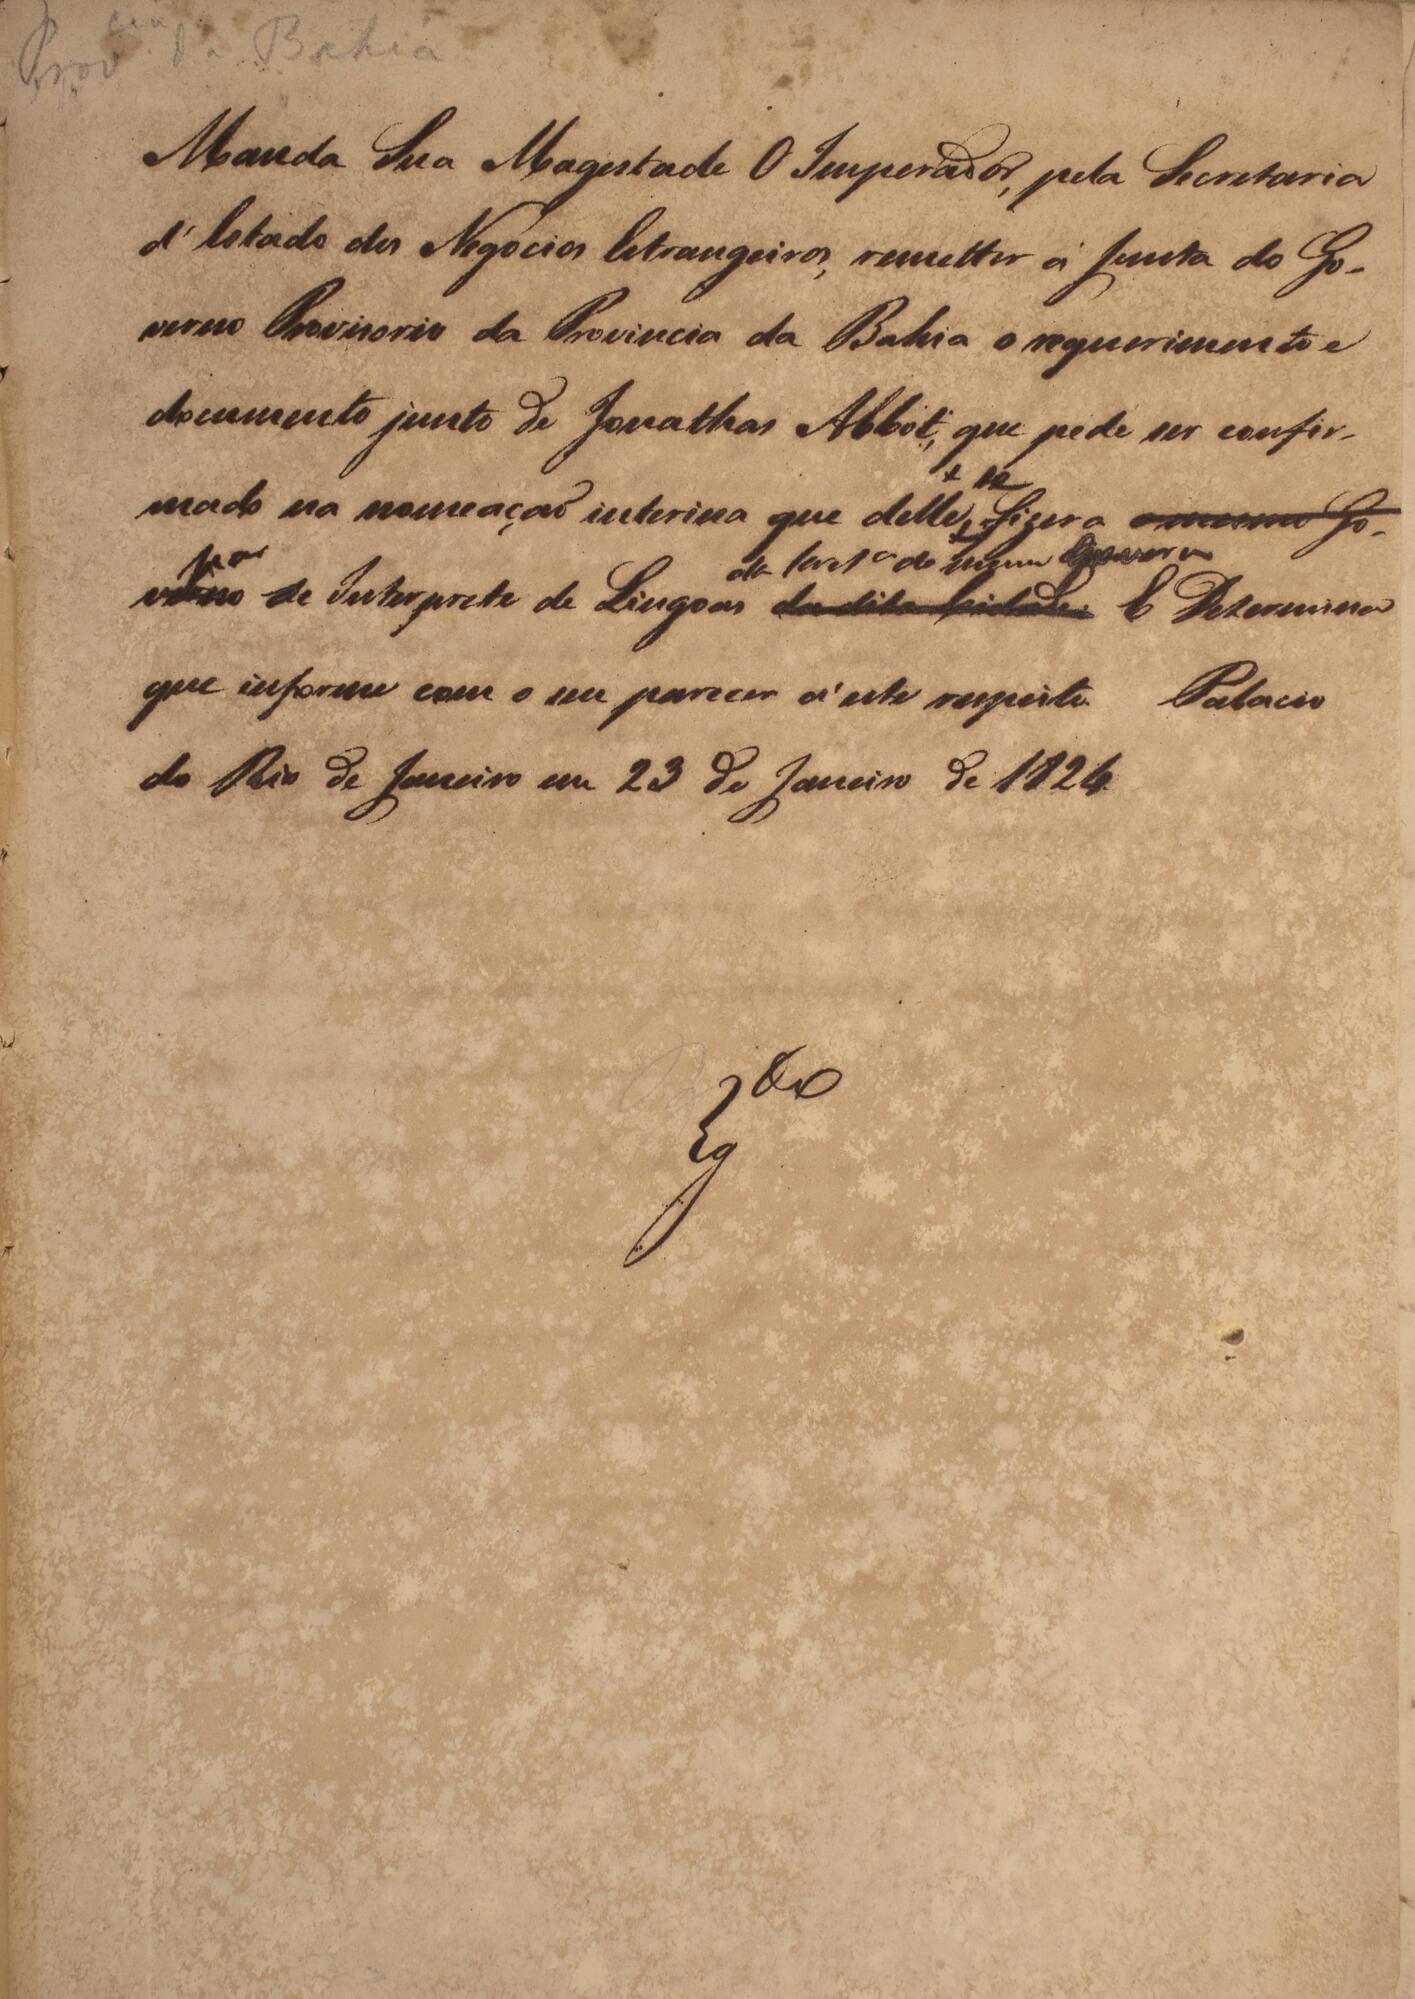 Prov.cia da Bahia
Manda Sua Magestade O Imperador, pela Secretaria
d'Estado dos Negocios Estrangeiros, remetter á Junta do Go-
verno Provisorio da Provincia da Bahia o requerimento e
documento junto de Jonathas Abbot, que pede ser confir-
mado na nomeação interina que delle se fizera o mesmo Go-
verno de por Interprete de Lingoas da dita Cidade. da Secret.ª do mesmo Governo E Determina
que informe com o seu parecer a'este respeito. Palacio
do Rio de Janeiro em 23 de Janeiro de 1824